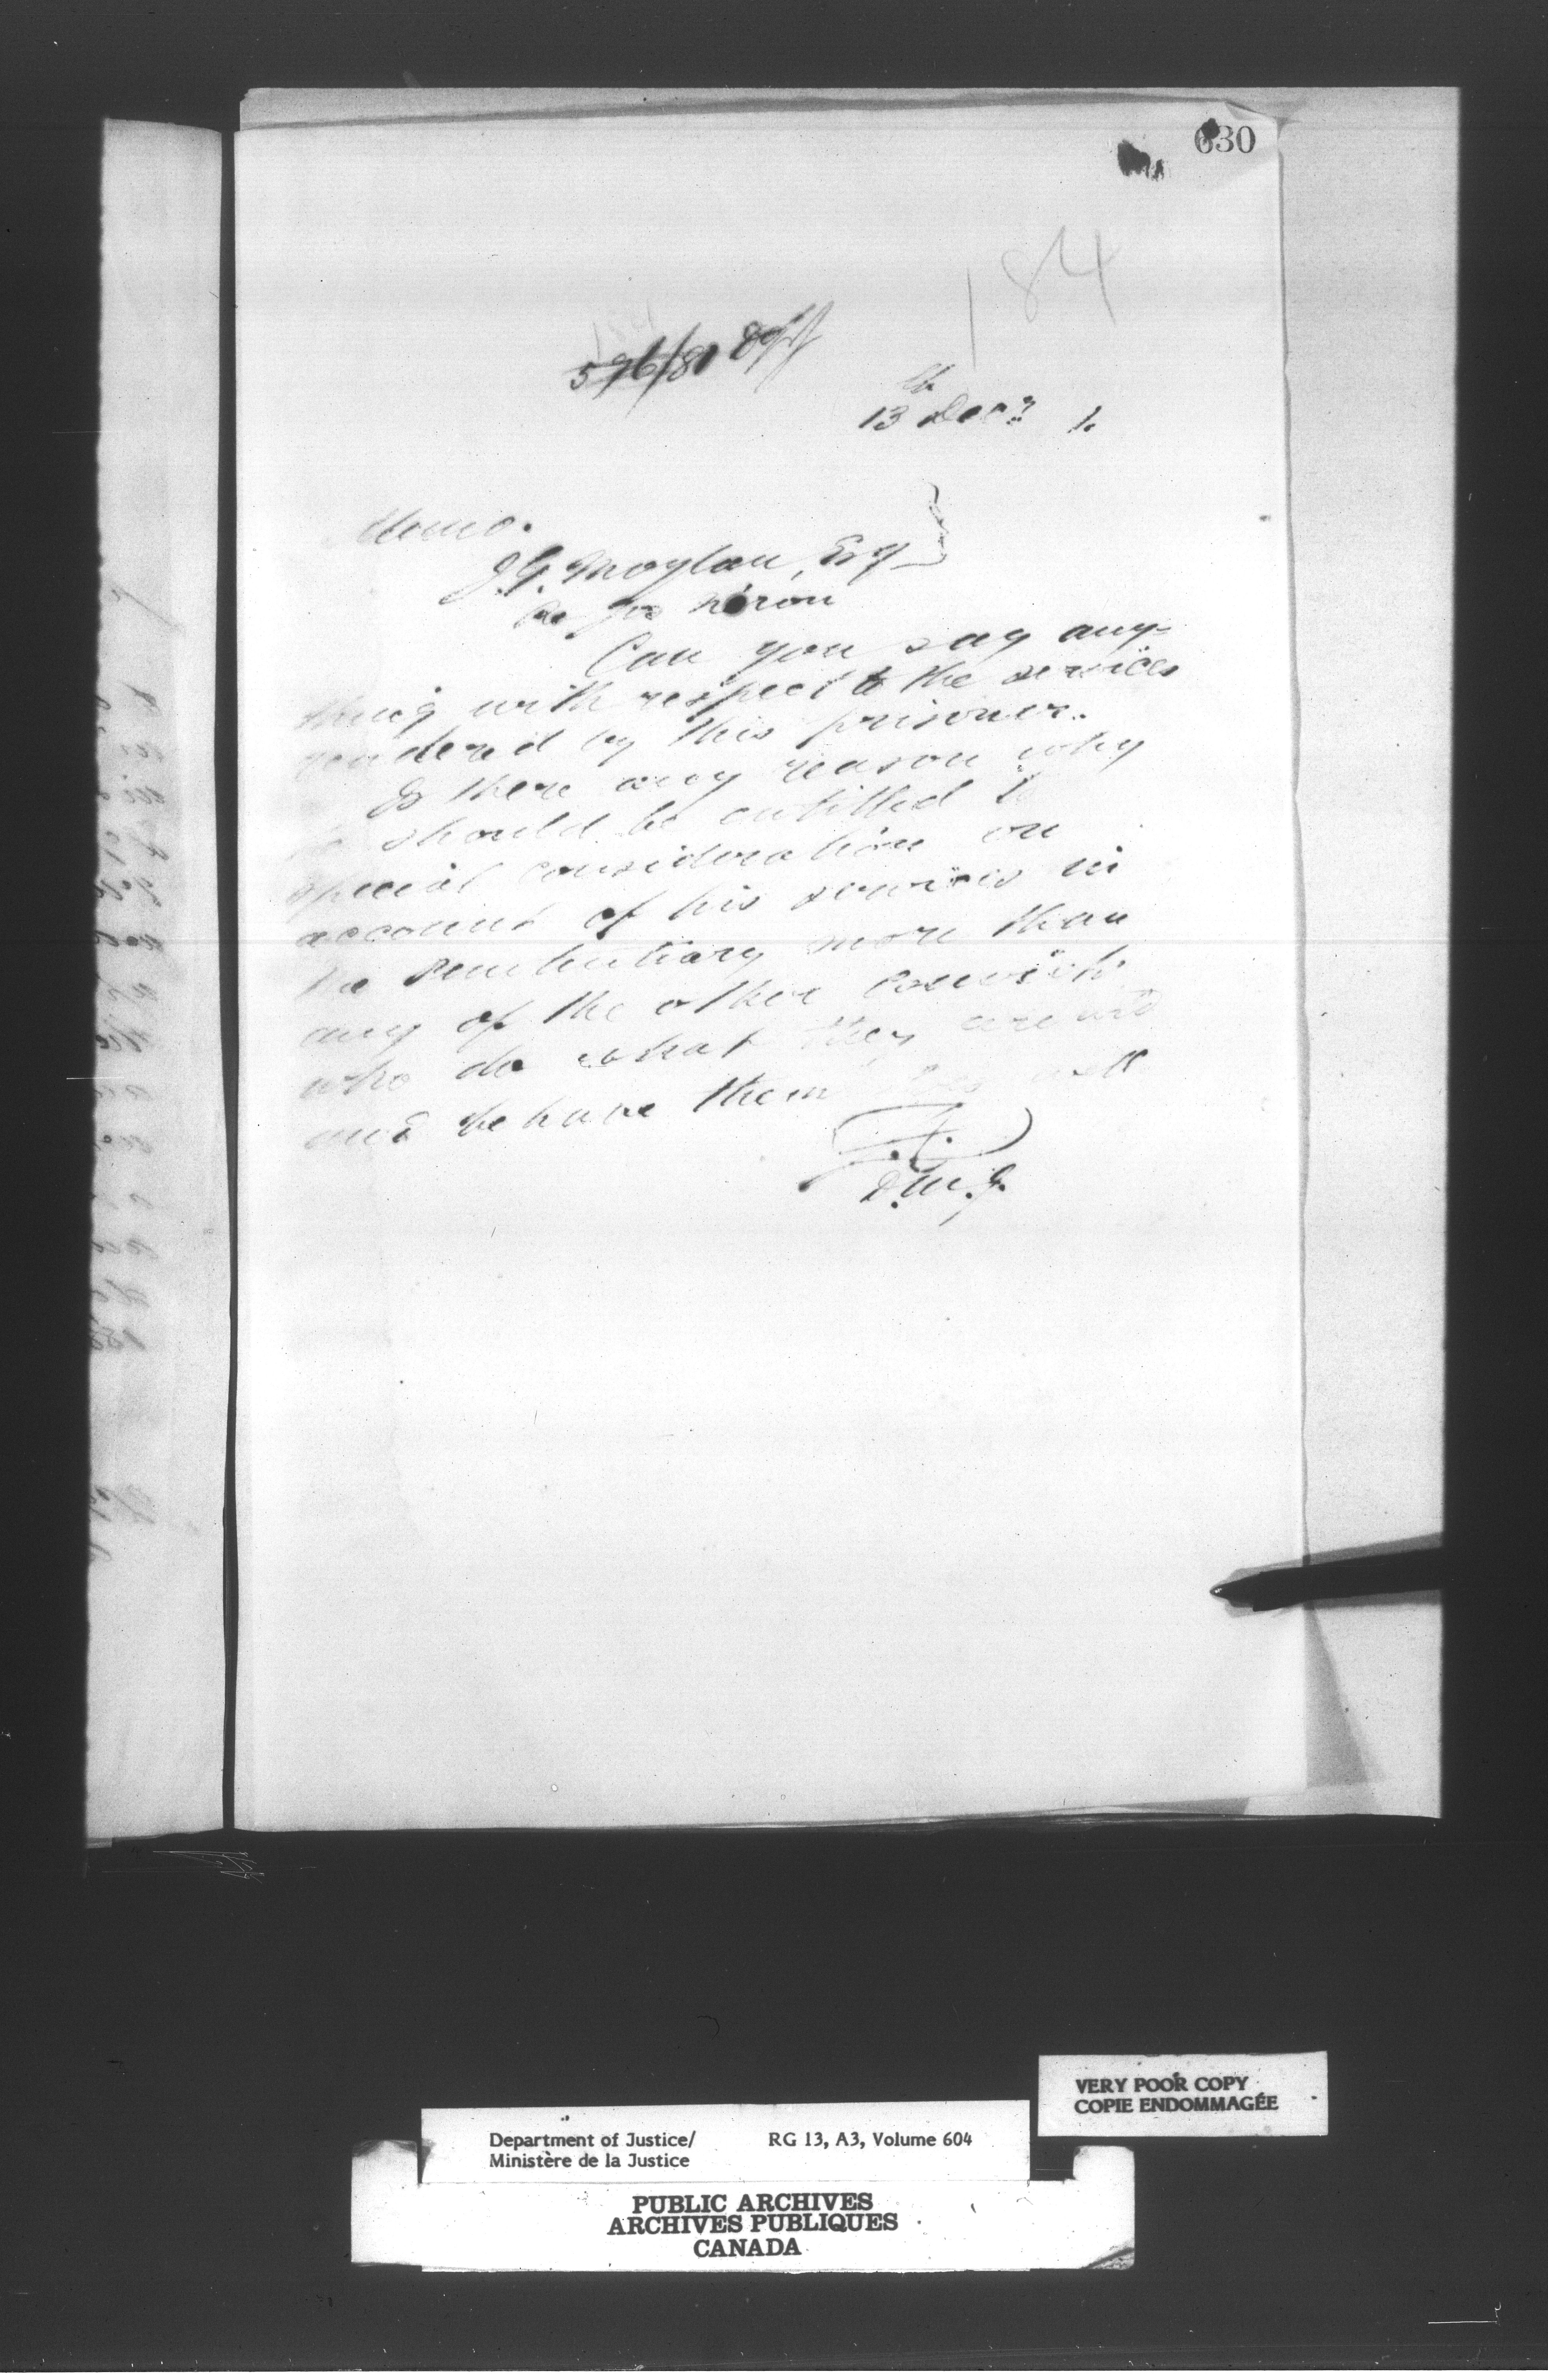 630
184
596/81
13th Decr 1.
Memo.
J.G. Moylan, Esq
Re Jos Néron
Can you say any-
thing with respect to the services
rendered by this prisoner.
Is there any reason why
should be entitled to
special consideration on
account of his services in
the penitentiary more than
any of the other convicts
who do what they are
and behave them well
D.M.J.
VERY POOR COPY
COPIE ENDOMMAGÉE
Department of Justice/ RG 13, A3, Volume 604
Ministère de la Justice
PUBLIC ARCHIVES
ARCHIVES PUBLIQUES
CANADA